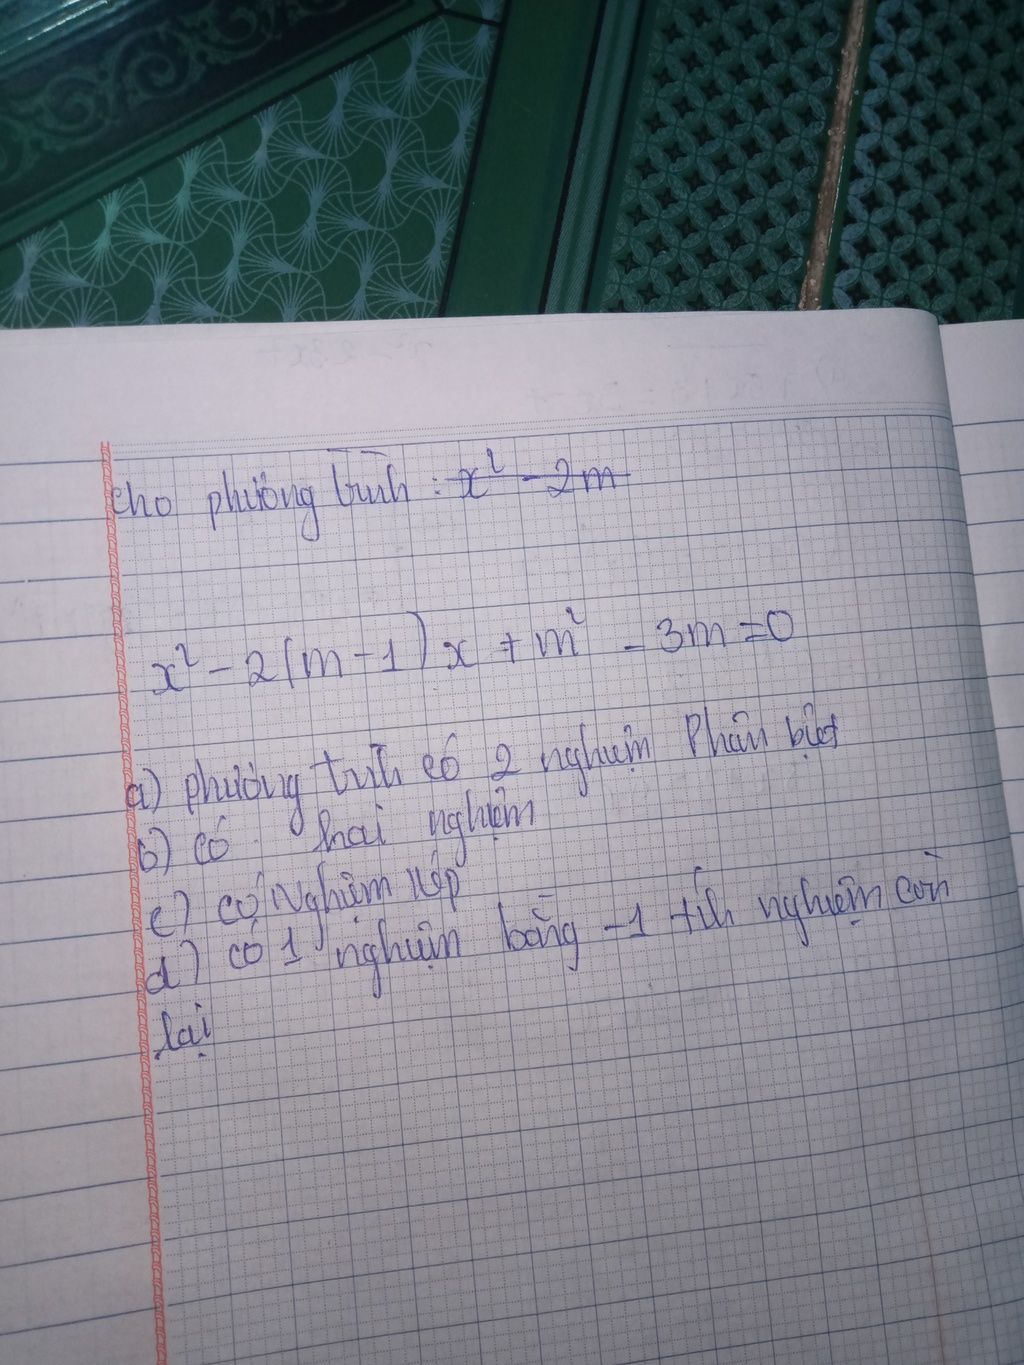 cho phương trình : x² - 2m
x² - 2(m-1)x + m² - 3m = 0
a) phương trình có 2 nghiệm Phân biệt
b) có hai nghiệm
c) có Nghiệm kép
d) có 1 nghiệm bằng -1 tính nghiệm còn
lại